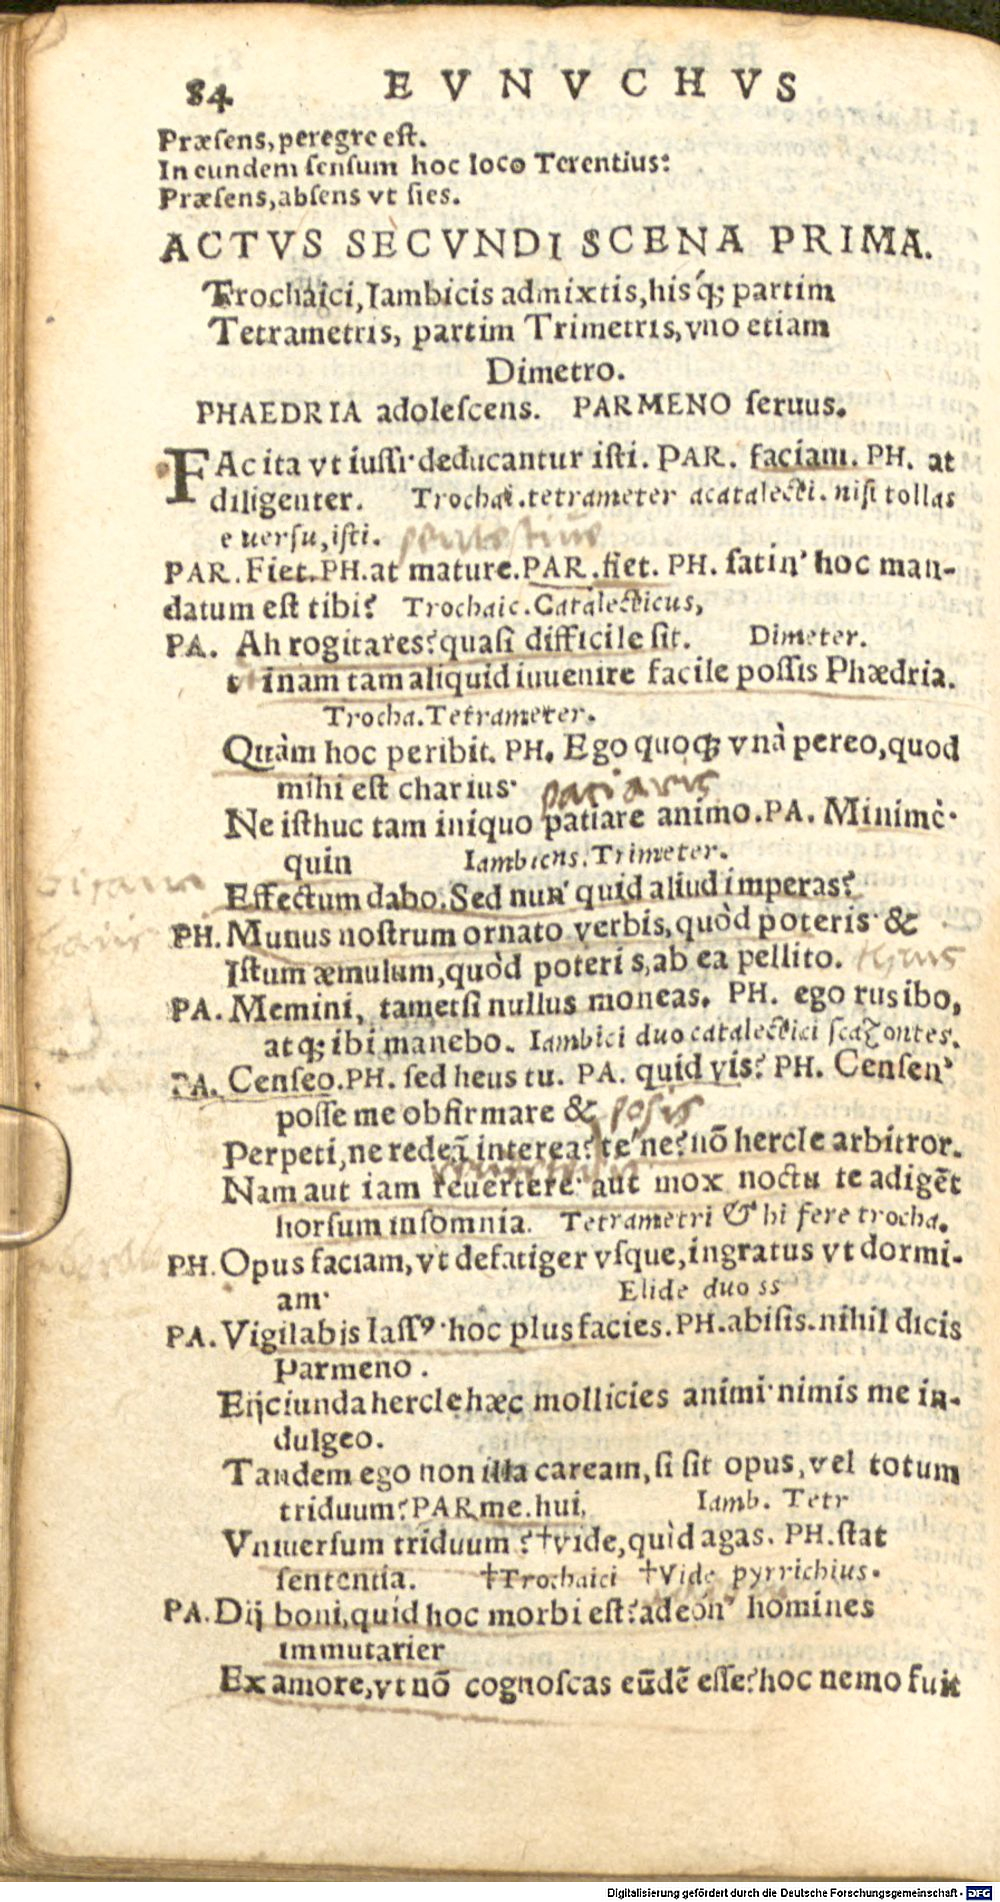 84 EVNVCHVS
Præsens, peregre est.
In eundem sensum hoc loco Terentius:
Præsens, absens vt sies.
ACTVS SECVNDI SCENA PRIMA.
Trochaici, Iambicis admixtis, hisq́; partim
Tetrametris, partim Trimetris, vno etiam
Dimetro.
PHAEDRIA adolescens. PARMENO seruus.
FAc ita vt iussi· deducantur isti. PAR. faciam. PH. at
diligenter. Trochai. tetrameter acatalecti. nisi tollas
e uersu, isti.
PAR. Fiet. PH. at mature. PAR. fiet. PH. satin' hoc man-
datum est tibi? Trochaic. Catalecticus,
PA. Ah rogitares? quasi difficile sit. Dimeter.
tinam tam aliquid inuenire facile possis Phædria.
Trocha. Tetrameter.
Quàm hoc peribit. PH. Ego quoq; vnà pereo, quod
mihi est charius·
patiaris
Ne isthuc tam iniquo patiare animo. PA. Minimè·
quin Iambicus. Trimeter.
Effectum dabo. Sed nun' quid aliud imperas?
PH. Munus nostrum ornato verbis, quòd poteris· &
Istum æmulum, quòd poteris, ab ea pellito.
PA. Memini, tametsi nullus moneas. PH. ego rus ibo,
atq; ibi manebo. Iambici duo catalectici scazontes.
PA. Censeo. PH. sed heus tu. PA. quid vis? PH. Censen'
posse me obfirmare &
posis
Perpeti, ne redeã interea? te' ne? nõ hercle arbitror.
Nam aut iam reuertere· aut mox noctu te adigẽt
horsum insomnia. Tetrametri & hi fere trocha.
PH. Opus faciam, vt defatiger vsque, ingratus vt dormi-
am· Elide duo ss
PA. Vigilabis lassꝰ· hoc plus facies. PH. abisis. nihil dicis
Parmeno.
Eijciunda hercle hæc mollicies animi· nimis me in-
dulgeo.
Tandem ego non illa caream, si sit opus, vel totum
triduum? PAR me. hui, Iamb. Tetr
Vniuersum triduum? †vide, quid agas. PH. stat
sententia. †Trochaici †Vide pyrrichius.
PA. Dij boni, quid hoc morbi est? adeon' homines
immutarier
Ex amore, vt nõ cognoscas eũdẽ esse? hoc nemo fuit
Digitalisierung gefördert durch die Deutsche Forschungsgemeinschaft - DFG